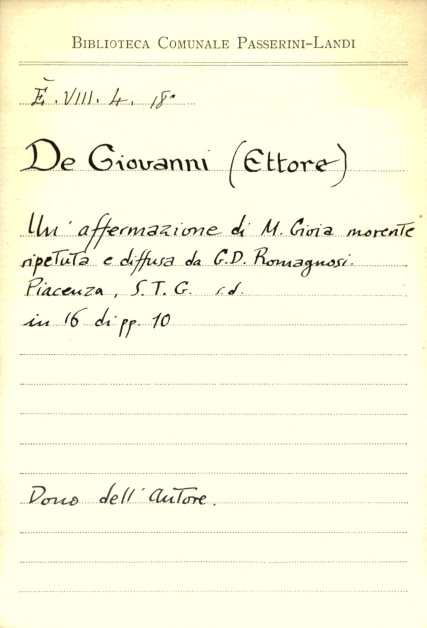 BIBLIOTECA COMUNALE PASSERINI-LANDI
È. VIII. 4. 18°
De Giovanni (Ettore)
Un' affermazione di M. Gioia morente
ripetuta e diffusa da G.D. Romagnosi.
Piacenza, S. T. G. s.d.
in 16 di pp. 10
Dono dell'autore.